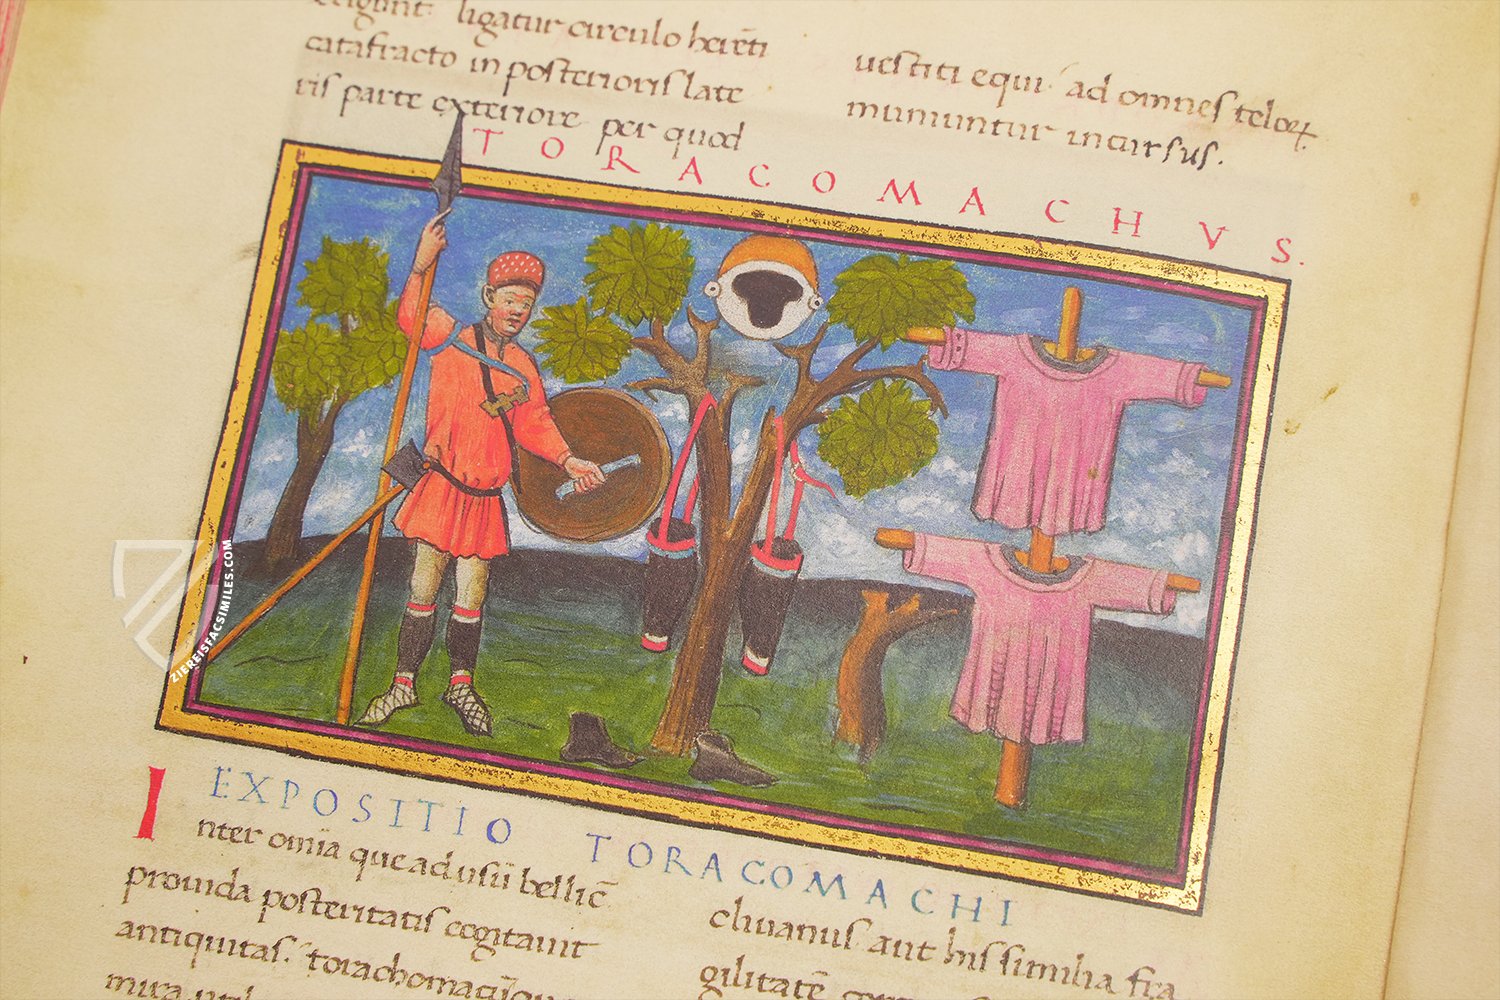 ligatur circulo herẽti
catafracto in posterioris late
ris parte exteriore per quod
uestiti equi ad omnes telorꝝ
muniuntur incursus.
TORACOMACHVS.
EXPOSITIO TORACOMACHI
Inter omĩa que ad usũ bellicũ
prouida posteritatis cogitauit
antiquitas. torachomacũ
mira
chuanus aut his similia fra
gilitatẽ
ZIEREISFACSIMILES.COM